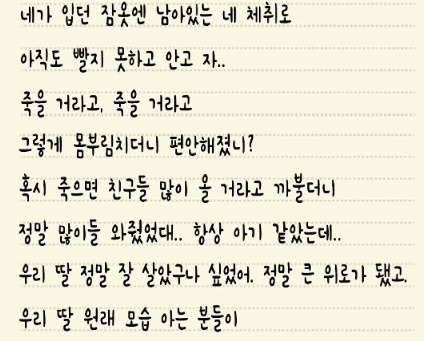 네가 입던 잠옷엔 남아있는 네 체취로
아직도 빨지 못하고 안고 자..
죽을 거라고, 죽을 거라고
그렇게 몸부림치더니 편안해졌니?
혹시 죽으면 친구들 많이 올 거라고 까불더니
정말 많이들 와줬었대.. 항상 아기 같았는데..
우리 딸 정말 잘 살았구나 싶었어. 정말 큰 위로가 됐고.
우리 딸 원래 모습 아는 분들이